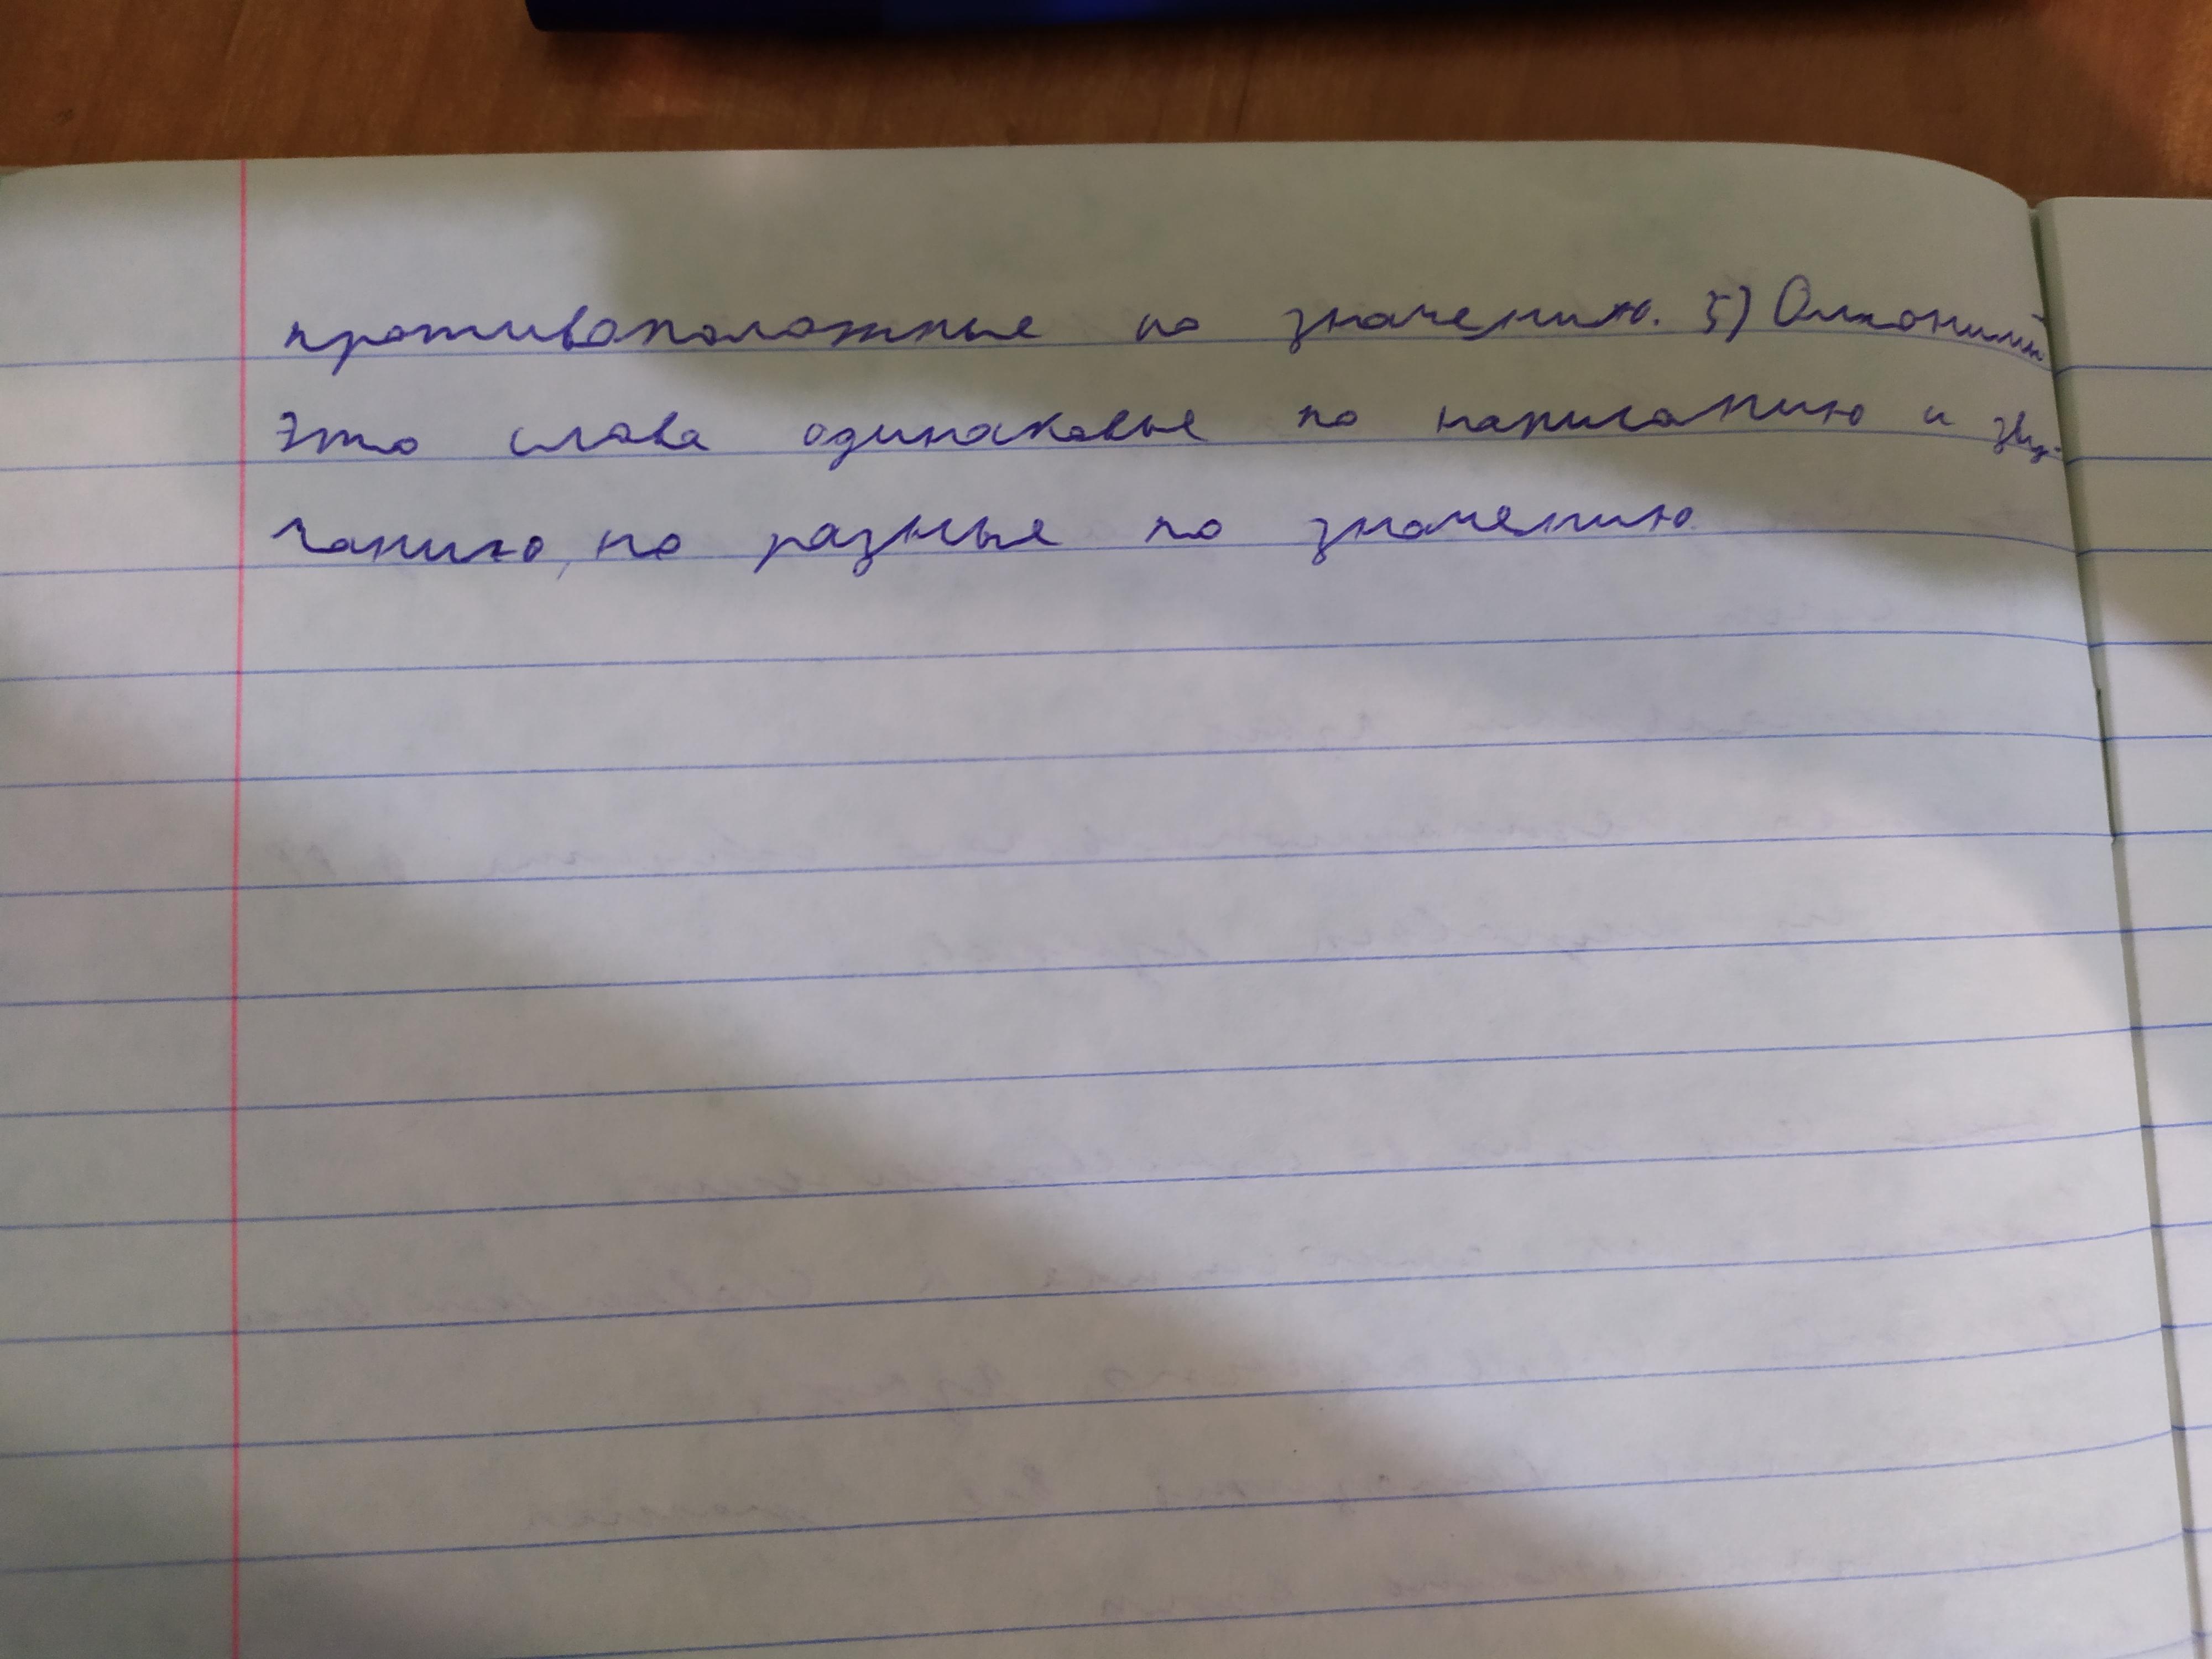 противоположные по значению. 5) Омонимы
это слова одинаковые по написанию и зву-
чанию, но разные по значению.